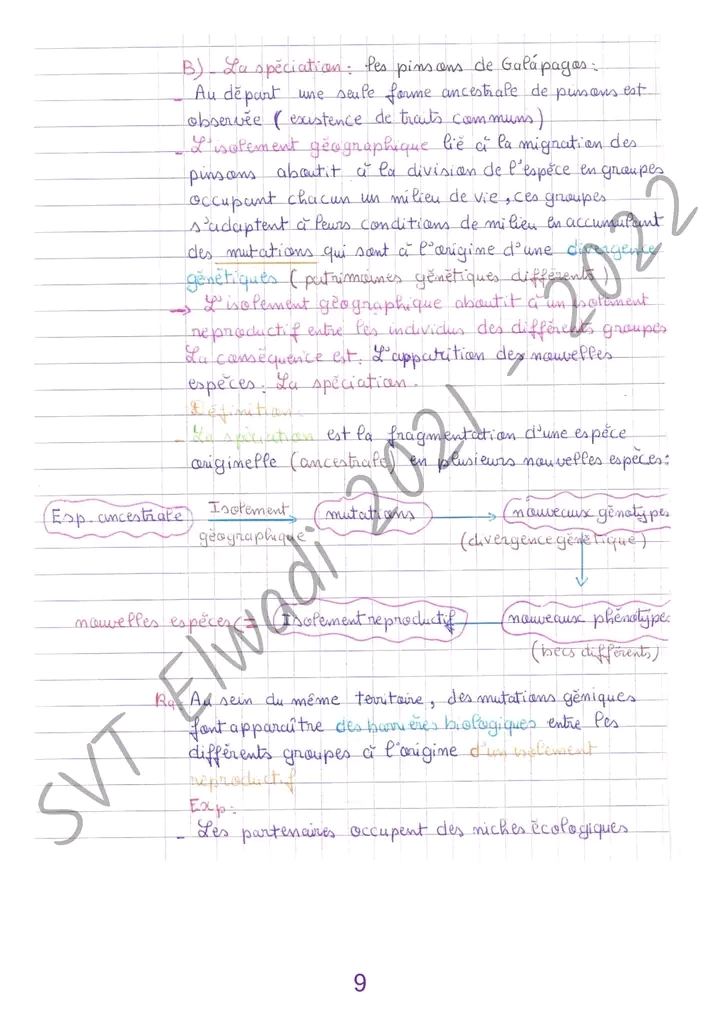 B)_ La spéciation: les pinsons de Galápagos:
_ Au départ une seule forme ancestrale de pinsons est
observée (existence de traits communs)
_ L'isolement géographique lié à la migration des
pinsons aboutit à la division de l'espèce en groupes
occupant chacun un milieu de vie, ces groupes
s'adaptent à leurs conditions de milieu en accumulant
des mutations qui sont à l'origine d'une divergence
génétiques (patrimoines génétiques différents)
→ L'isolement géographique aboutit à un isolement
reproductif entre les individus des différents groupes
La conséquence est: L'apparition des nouvelles
espèces: La spéciation.
Définition:
_ La spéciation est la fragmentation d'une espèce
originelle (ancestrale) en plusieurs nouvelles espèces:
Esp. ancestrale Isolement géographique → mutations → nouveaux génotypes
(divergence génétique)
nouvelles espèces <= Isolement reproductif — nouveaux phénotypes
(becs différents)
Rq: Au sein du même territoire, des mutations géniques
font apparaître des barrières biologiques entre les
différents groupes à l'origine d'un isolement
reproductif
Exp:
_ Les partenaires occupent des niches écologiques
SVT Elwadi 2021 - 2022
9